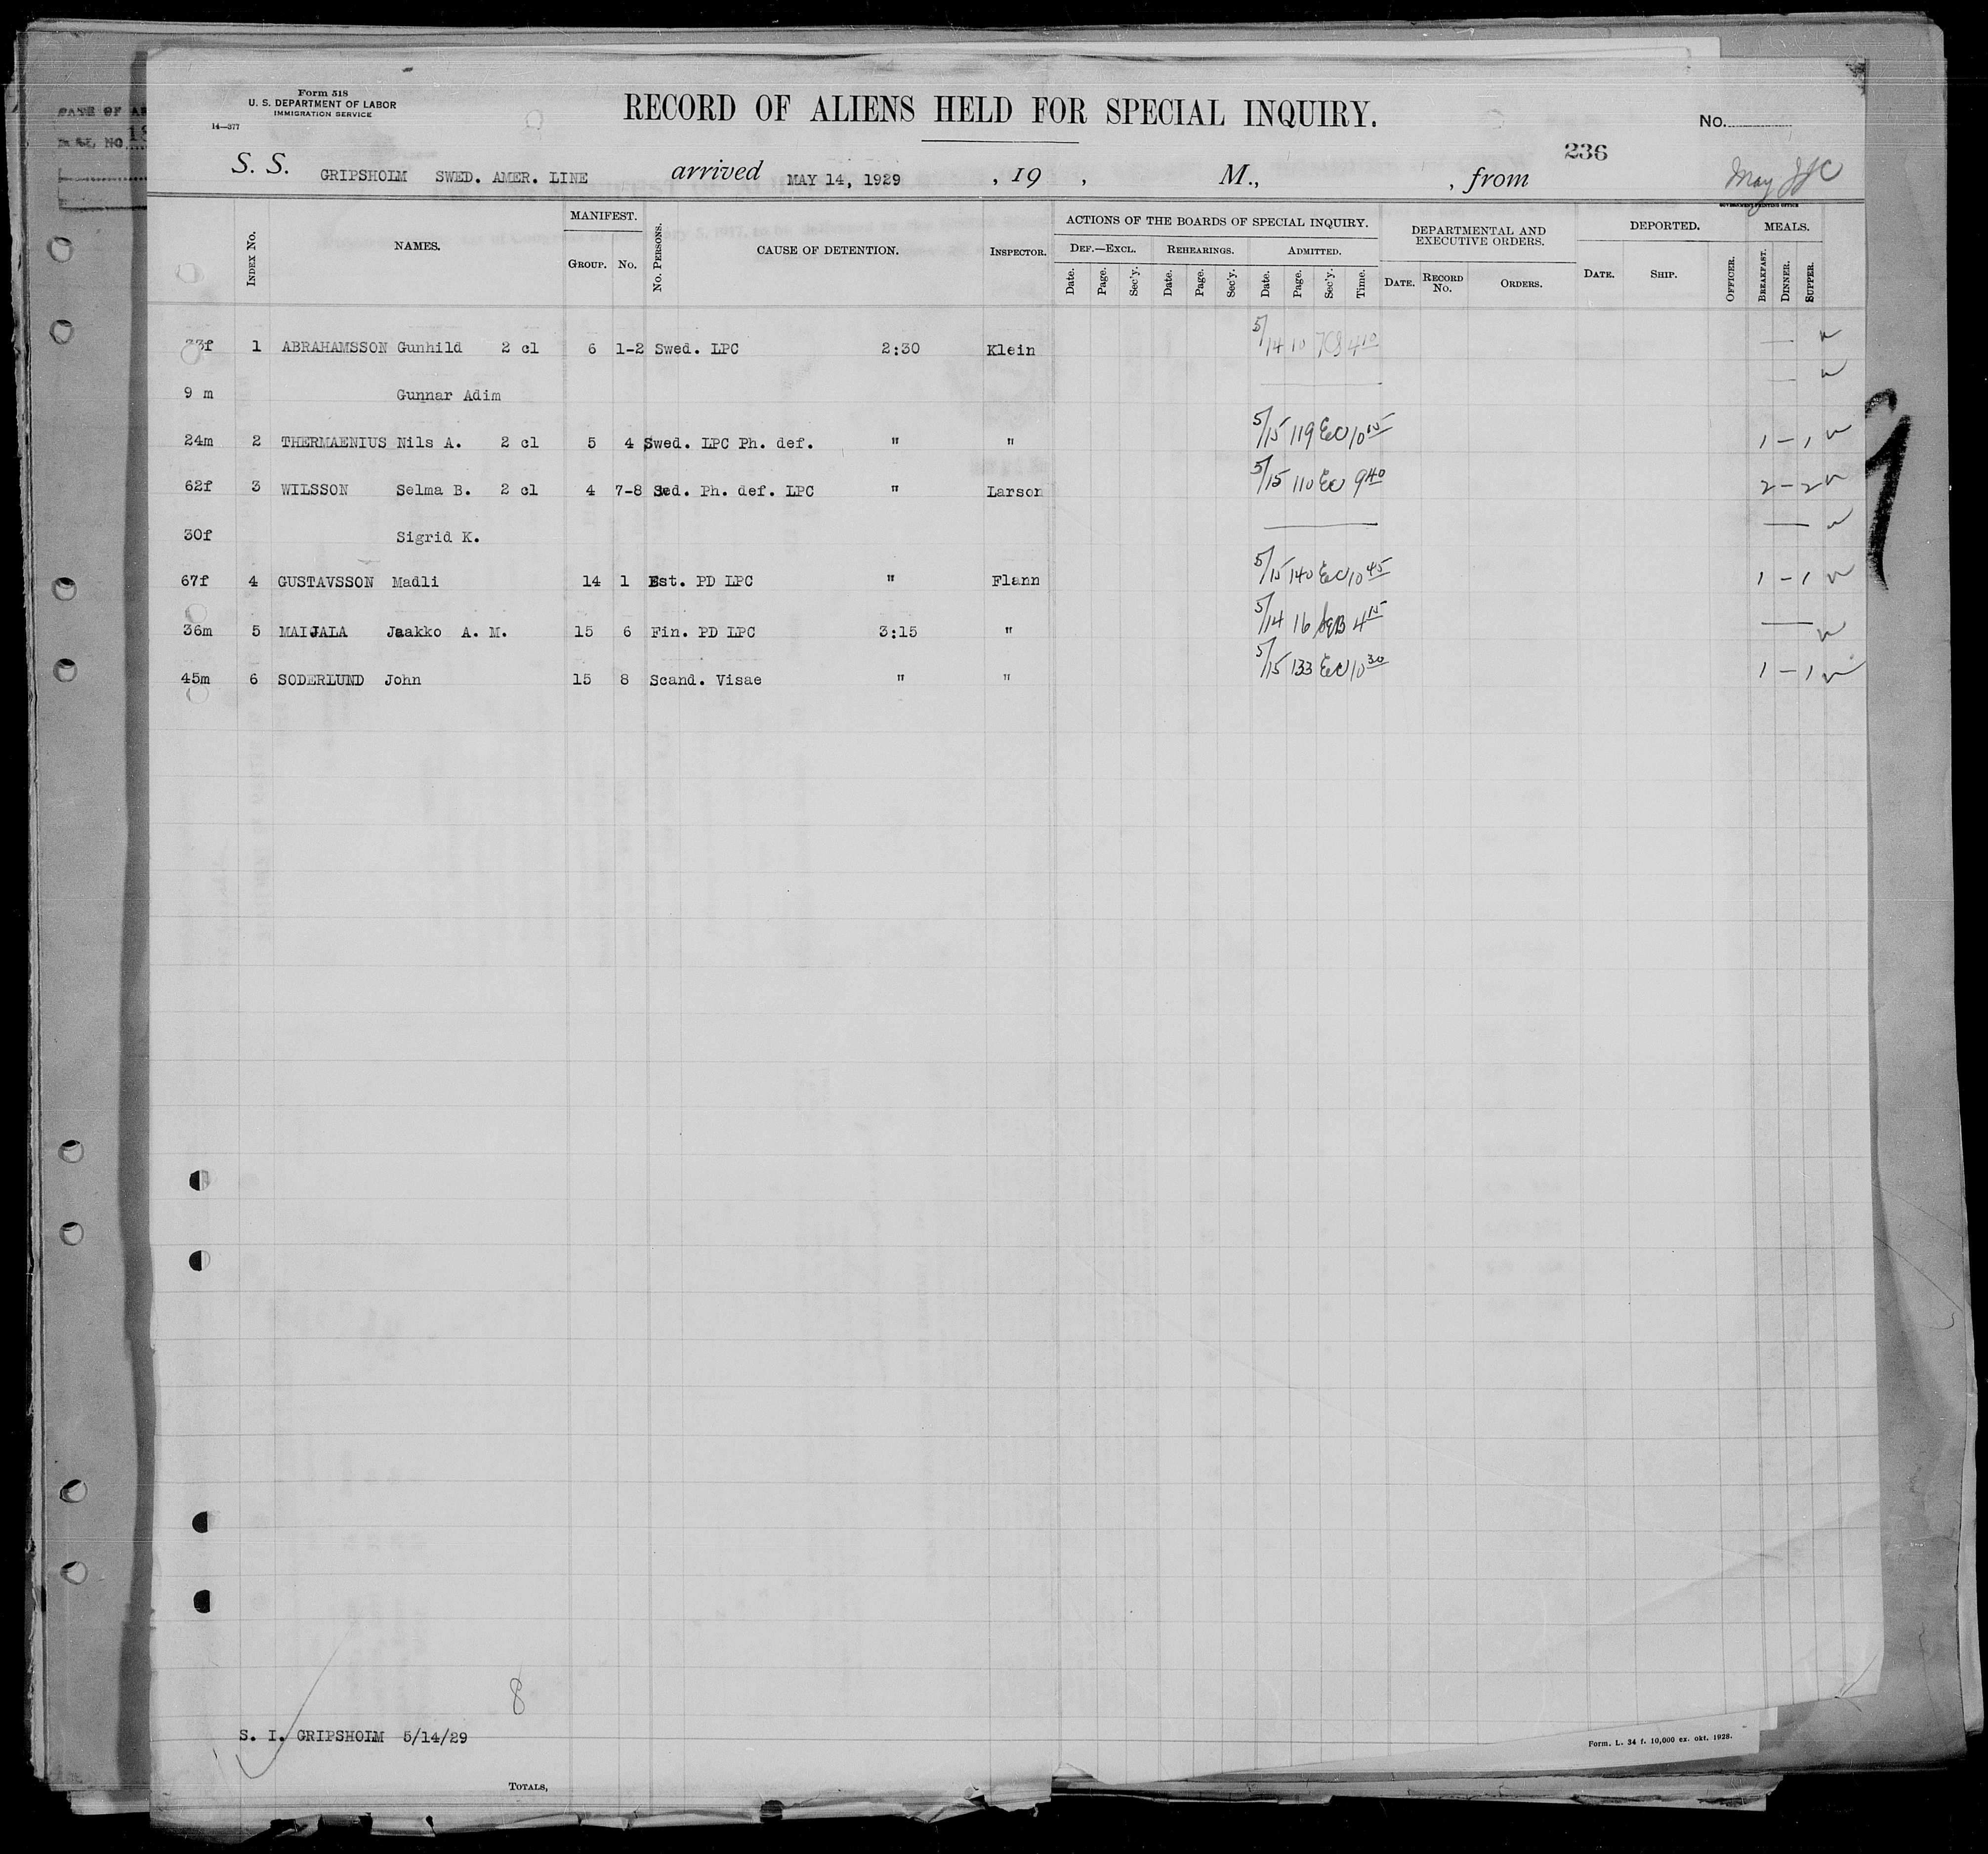 Form 518
U. S. DEPARTMENT OF LABOR
IMMIGRATION SERVICE
14—377
RECORD OF ALIENS HELD FOR SPECIAL INQUIRY.
No.
236
S. S. GRIPSHOLM SWED. AMER. LINE arrived MAY 14, 1929 , 19 , M., , from
May
GOVERNMENT PRINTING OFFICE
INDEX NO. NAMES. MANIFEST. GROUP. NO. NO. PERSONS. CAUSE OF DETENTION. INSPECTOR. ACTIONS OF THE BOARDS OF SPECIAL INQUIRY. DEPARTMENTAL AND EXECUTIVE ORDERS. DEPORTED. MEALS.
DEF.—EXCL. REHEARINGS. ADMITTED.
Date. Page. Sec'y. Date. Page. Sec'y. Date. Page. Sec'y. Time. DATE. RECORD NO. ORDERS. DATE. SHIP. OFFICER. BREAKFAST. DINNER. SUPPER.
33f 1 ABRAHAMSSON Gunhild 2 cl 6 1-2 Swed. LPC 2:30 Klein 5/14 10 4 10 —
9 m Gunnar Adim —
24m 2 THERMAENIUS Nils A. 2 cl 5 4 Swed. LPC Ph. def. " " 5/15 119 EC 10 15 1 – 1
62f 3 WILSSON Selma B. 2 cl 4 7-8 Sed. Ph. def. LPC " Larson 5/15 110 EC 9 40 2 – 2
30f Sigrid K. —
67f 4 GUSTAVSSON Madli 14 1 Est. PD LPC " Flann 5/15 140 EC 10 45 1 – 1
36m 5 MAIJALA Jaakko A. M. 15 6 Fin. PD LPC 3:15 " 5/14 16 4 15 —
45m 6 SODERLUND John 15 8 Scand. Visae " " 5/15 133 EC 10 30 1 – 1
8
S. I. GRIPSHOLM 5/14/29
TOTALS,
Form. L. 34 f. 10,000 ex. okt. 1928.